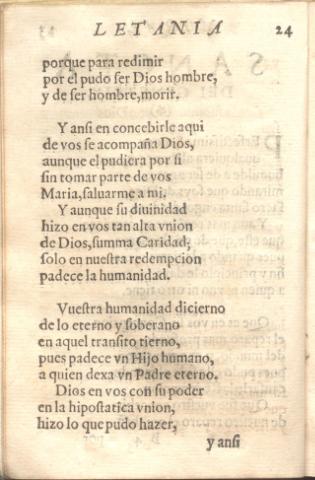 LETANIA 24
porque para redimir
por el pudo ser Dios hombre,
y de ser hombre, morir.
Y ansi en concebirle aqui
de vos se acompaña Dios,
aunque el pudiera por si
sin tomar parte de vos
Maria, saluarme a mi.
Y aunque su diuinidad
hizo en vos tan alta vnion
de Dios, summa Caridad,
solo en nuestra redempcion
padece la humanidad.
Vuestra humanidad dicierno
de lo eterno y soberano
en aquel transito tierno,
pues padece vn Hijo humano,
a quien dexa vn Padre eterno.
Dios en vos con su poder
en la hipostatica vnion,
hizo lo que pudo hazer,
y ansi